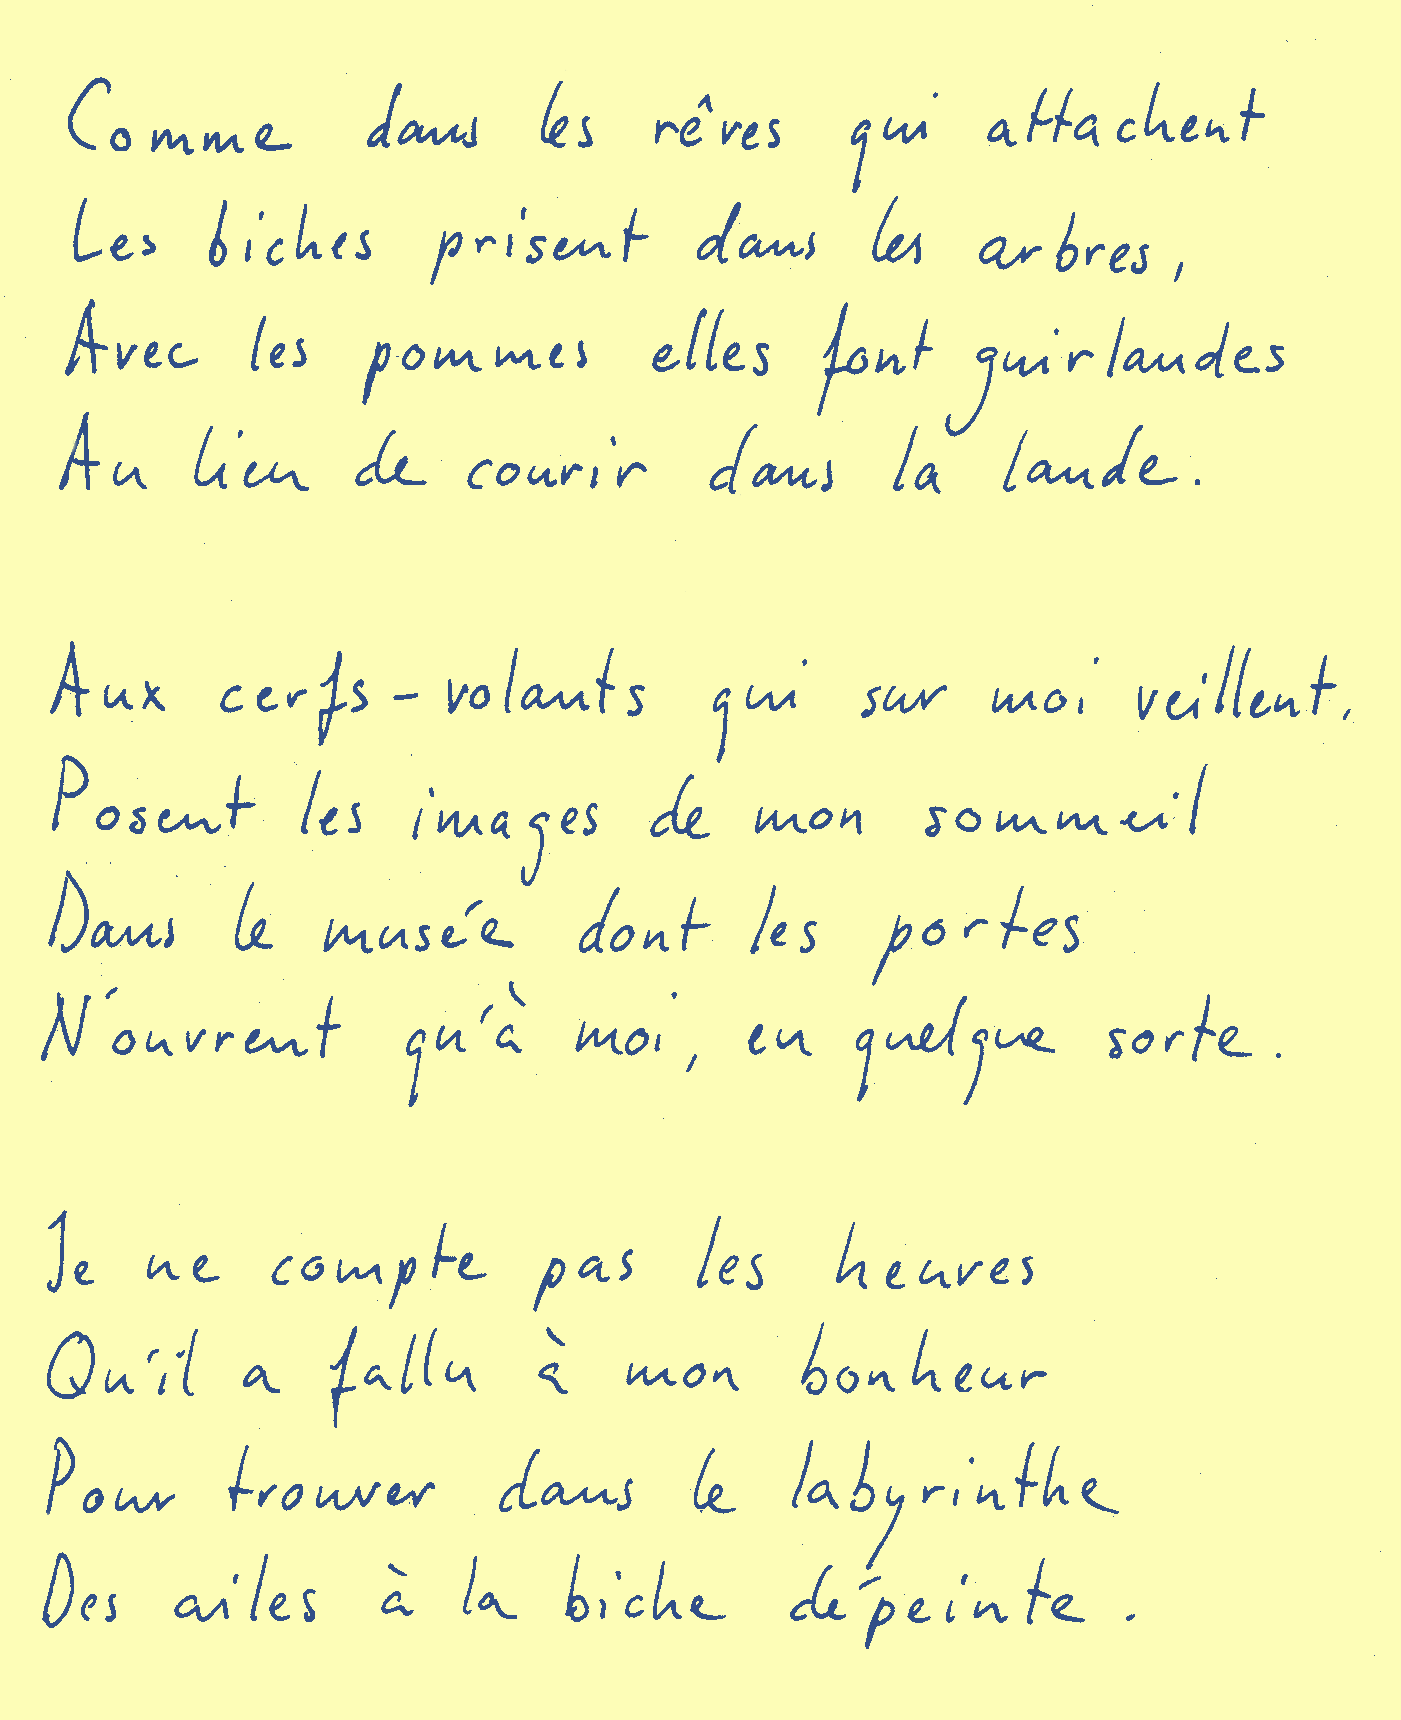 Comme dans les rêves qui attachent
Les biches prisent dans les arbres,
Avec les pommes elles font guirlandes
Au lieu de courir dans la lande.
Aux cerfs-volants qui sur moi veillent,
Posent les images de mon sommeil
Dans le musée dont les portes
N'ouvrent qu'à moi, en quelque sorte.
Je ne compte pas les heures
Qu'il a fallu à mon bonheur
Pour trouver dans le labyrinthe
Des ailes à la biche dépeinte.